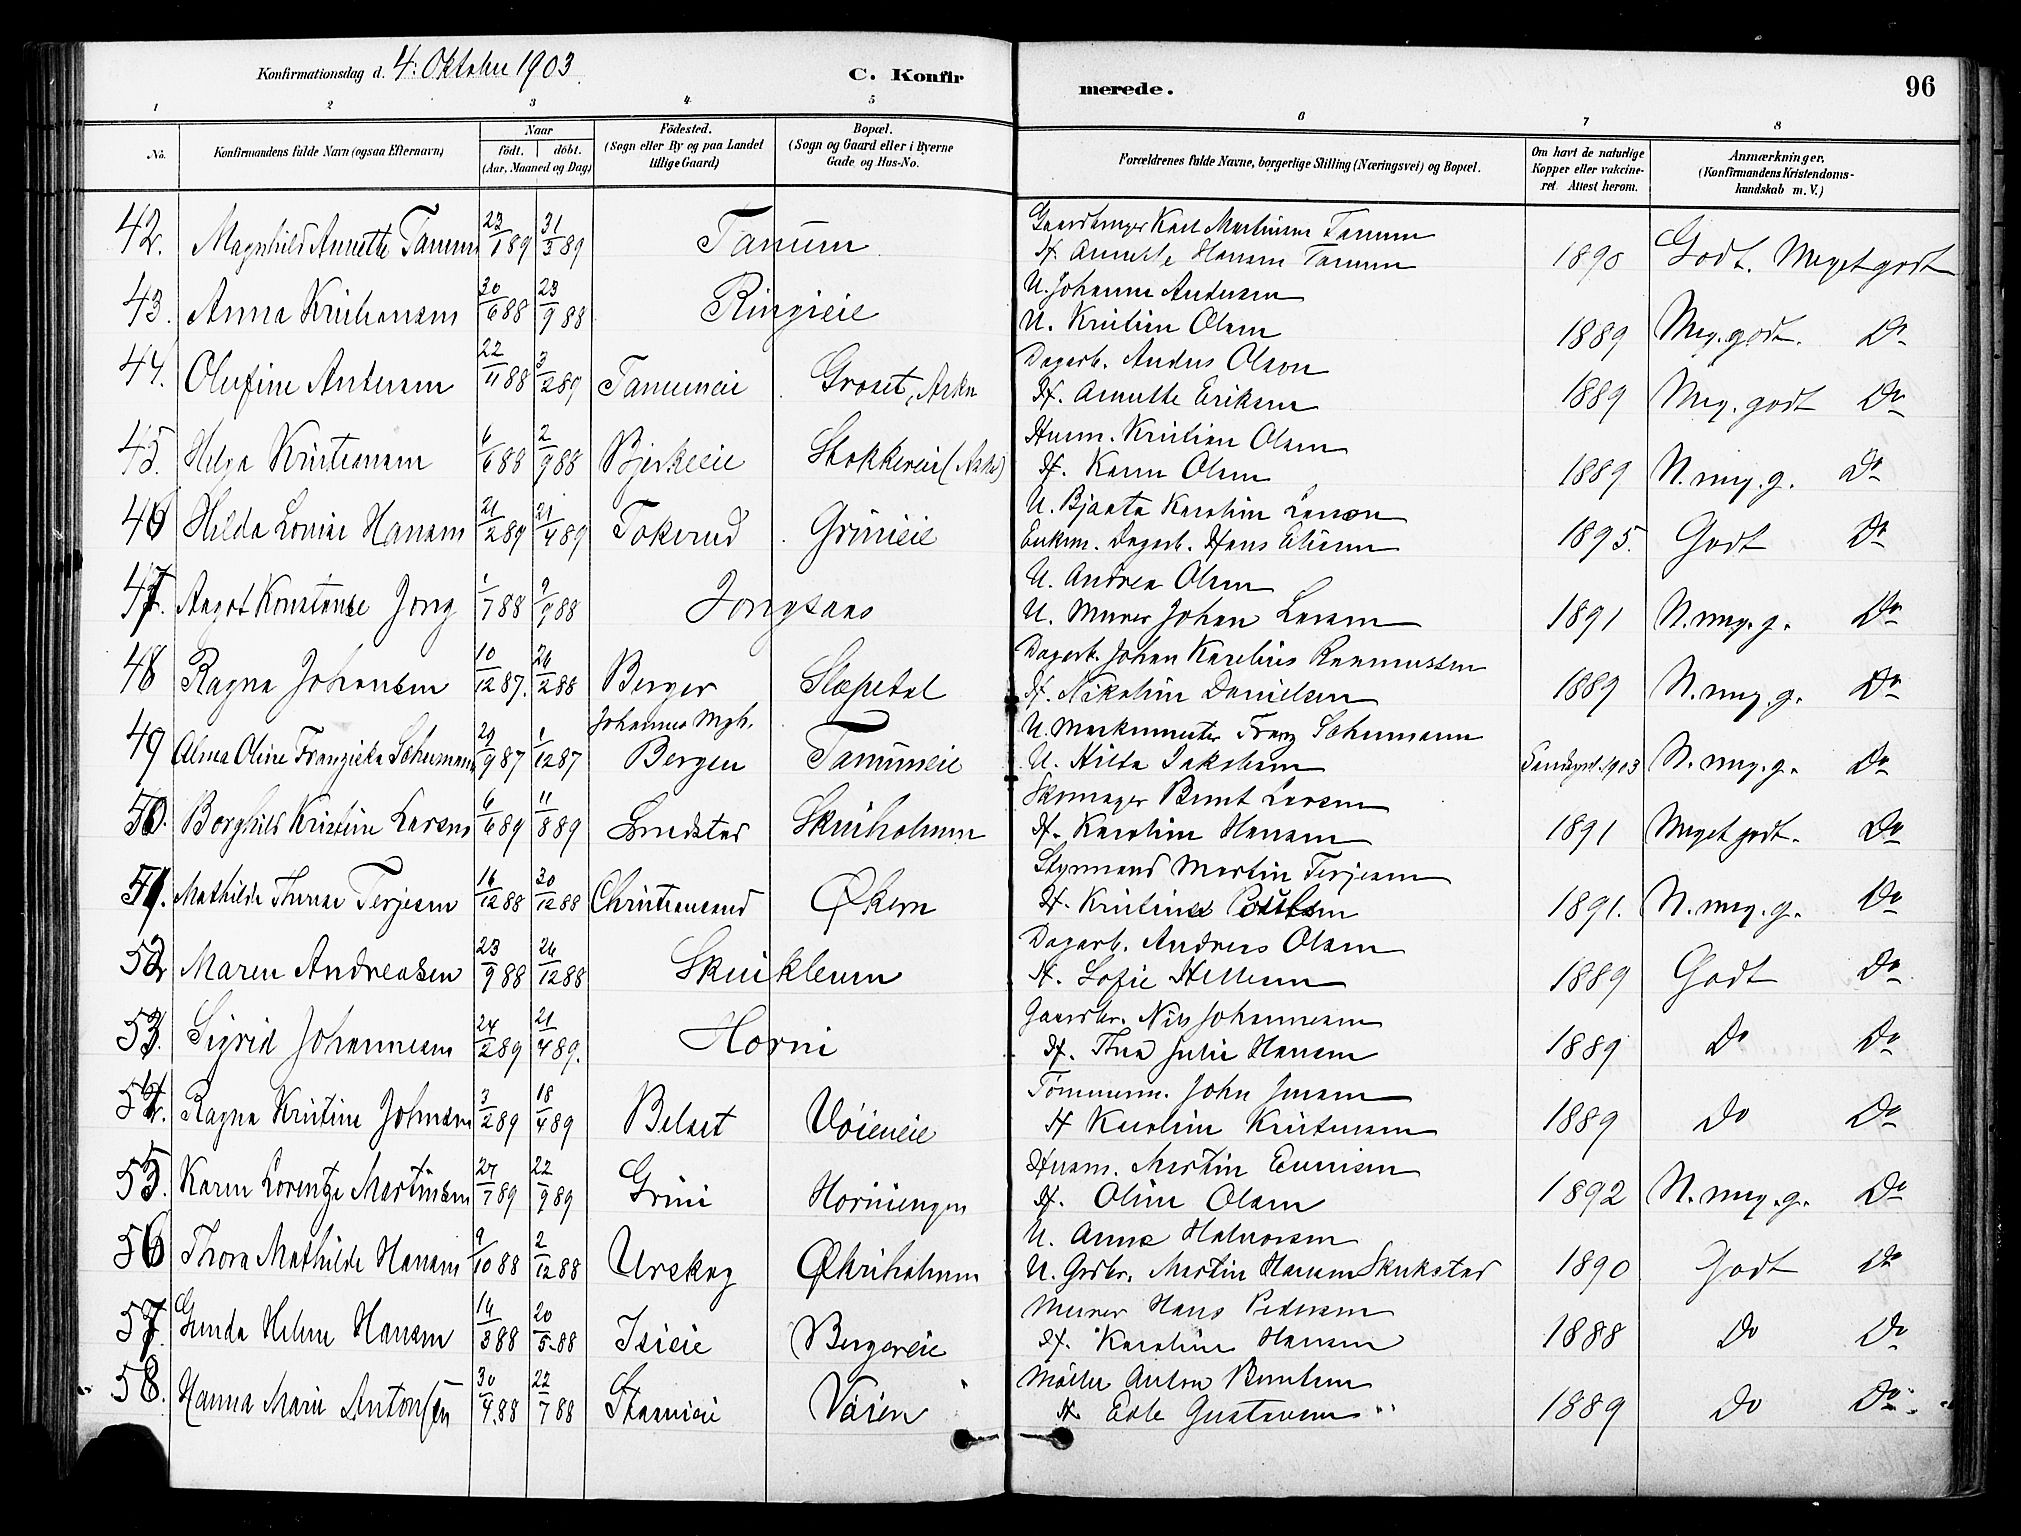 Konfirmationsdag d. 4. Oktober 1903. C. Konfirmerede. 96
1 2 3 4 5 6 7 8
No. Konfirmandens fulde Navn (ogsaa Efternavn) Naar födt. döbt. (Aar, Maaned og Dag) Födested. (Sogn eller By og paa Landet tillige Gaard) Bopæl. (Sogn og Gaard eller i Byerne Gade og Hus-No. Forældrenes fulde Navne, borgerlige Stilling (Næringsvei) og Bopæl. Om havt de naturlige Kopper eller vakcineret. Attest herom. Anmærkninger. (Konfirmandens Kristendomskundskab m. V.)
42. Magnhild Annette Tanum 23/1 89 31/3 89 Tanum Gaardbruger Karl Martinsen Tanum
H. Annette Hansen Tanum 1890 Godt. Meget godt
43. Anna Kristiansen 30/6 88 23/9 88 Ringieie U. Johanne Andersen
U. Kristian Olsen 1889 Meg. godt. Do
44. Olufine Andersen 22/11 88 3/2 89 Tanumeie Groset, Asker Dagarb. Anders Olson
H. Annette Eriksen 1889 Meg. godt Do
45. Helga Kristiansen 6/6 88 2/9 88 Bjerkeeie Stokkereie (Aske) Husm. Kristian Olsen
H. Karen Olsen 1889 N. meg. g. Do
46 Hilda Louise Hansen 21/2 89 21/4 89 Tokerud Grinieie U. Bjaata Karoline Larson
Enkem. Dagarb. Hans Eliesen 1895. Godt Do
47. Aagot Konstanse Jong 1/7 88 9/9 88 Jongsaas U. Andrea Olsen
U. Murer Johan Larsen 1891 N. meg. g. Do
48 Ragna Johansen 10/12 87. 26/2 88 Berger Slæpetal Dagarb. Johan Karelius Rasmussen
H. Nikoline Danielsen 1889 N. meg. g. Do
49 Alma Oline Franziska Schumann 29/9 87 1/12 87 Johannes Mgh. Bergen Tanumeie U. Maskinmester Franz Schumann
U. Hilda Jakobsen 1903 N. meg. g. Do
50. Borghild Kristine Larsen 6/6 89 11/8 89 Skuiholmen Skomager Bernt Larsen
H. Karoline Hansen 1891 Meget godt. Do
51. Mathilde Therese Terjesen 16/12 88 30/12 88 Christiansand Økern Styrmand Martin Terjesen
H. Kristine 1891. N. meg. g. Do
52 Maren Andreasen 23/9 88 26/12 88 Skuikleven Dagarb. Andreas Olsen
H. Sofie Hellesen 1889 Godt Do
53. Sigrid Johannesen 24/2 89 21/4 89. Horni Gaardbr. Nils Johannesen
H. Thea Julie Hansen 1889 Do Do
54. Ragna Kristine Johnsen 3/2 89 18/4 89 Belset Vöieneie Tömmerm. John Jensen
H Karoline Kristensen 1889 Do Do
55. Karen Lorentze Martinsen 27/7 89 22/9 89 Grini Horniengen Husm. Martin Evensen
H. Oline Olsen 1892 N. meg. g. Do
56 Thora Mathilde Hansen 9/10 88 2/12 88 Urskog Økriholmen U. Anna Halvorsen
U. Grdbr. Martin Hansen Skukstad 1890 Godt Do
57. Gunda Helene Hansen 14/3 88 20/5 88 Isieie Bergereie Murer Hans Pedersen
H. Karoline Hansen 1888 Do Do
58. Hanna Marie Antonsen 30/4 88 22/7 88 Vöien Möller Anton Berntsen
H. Edle Gustavsen 1889 Do Do